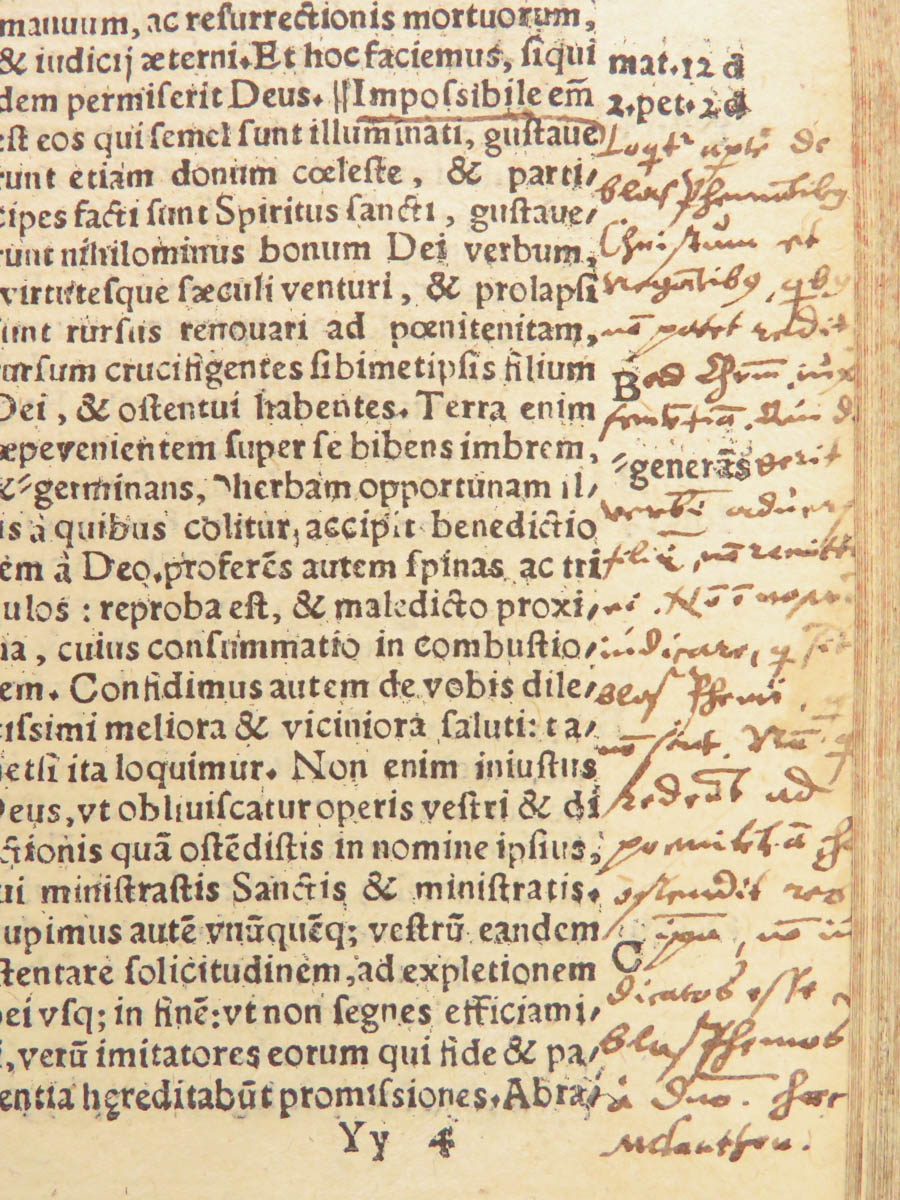 manuum, ac resurrectionis mortuorum,
& iudicij æterni. Et hoc faciemus, siqui
dem permiserit Deus. ||Impossibile em̄
est eos qui semel sunt illuminati, gustaue
runt etiam donum cœleste, & parti/
cipes facti sunt Spiritus sancti, gustaue/
runt nihilominus bonum Dei verbum,
virtutesque sæculi venturi, & prolapsi
sunt rursus renouari ad pœnitenitam,
rursum crucifigentes sibimetipsis filium
Dei, & ostentui habentes. Terra enim
æpevenientem super se bibens imbrem,
&⸗germinans, ⸌herbam opportunam il/
is à quibus colitur, accipit benedictio
em à Deo. proferēs autem spinas ac tri
ulos: reproba est, & maledicto proxi/
na, cuius consummatio in combustio/
em. Confidimus autem de vobis dile/
tissimi meliora & viciniora saluti: ta/
etsi ita loquimur. Non enim iniustus
Deus, vt obliuiscatur operis vestri & di
ctionis quā ostēdistis in nomine ipsius,
ui ministrastis Sanctis & ministratis.
upimus autē vnūquēq; vestrū eandem
stentare solicitudinem, ad expletionem
pei vsq; in finē: vt non segnes efficiami/
, verū imitatores eorum qui fide & pa/
entia hęreditabūt promissiones. Abra/
Yy 4
mat. 12 d
2. pet. 2 d
de
blasphemātibus
Christum et
negātibus
nō potest redit
B
ad Chrm̄
⸗generās
verbū aduers
filiū, nō remitt
iudicare,
blasphemi
nō sint.
redeūt ad
ostendit
C
nō iu
dicatos esse
blasphemos
à Dn̄o. haec
Melanthon.